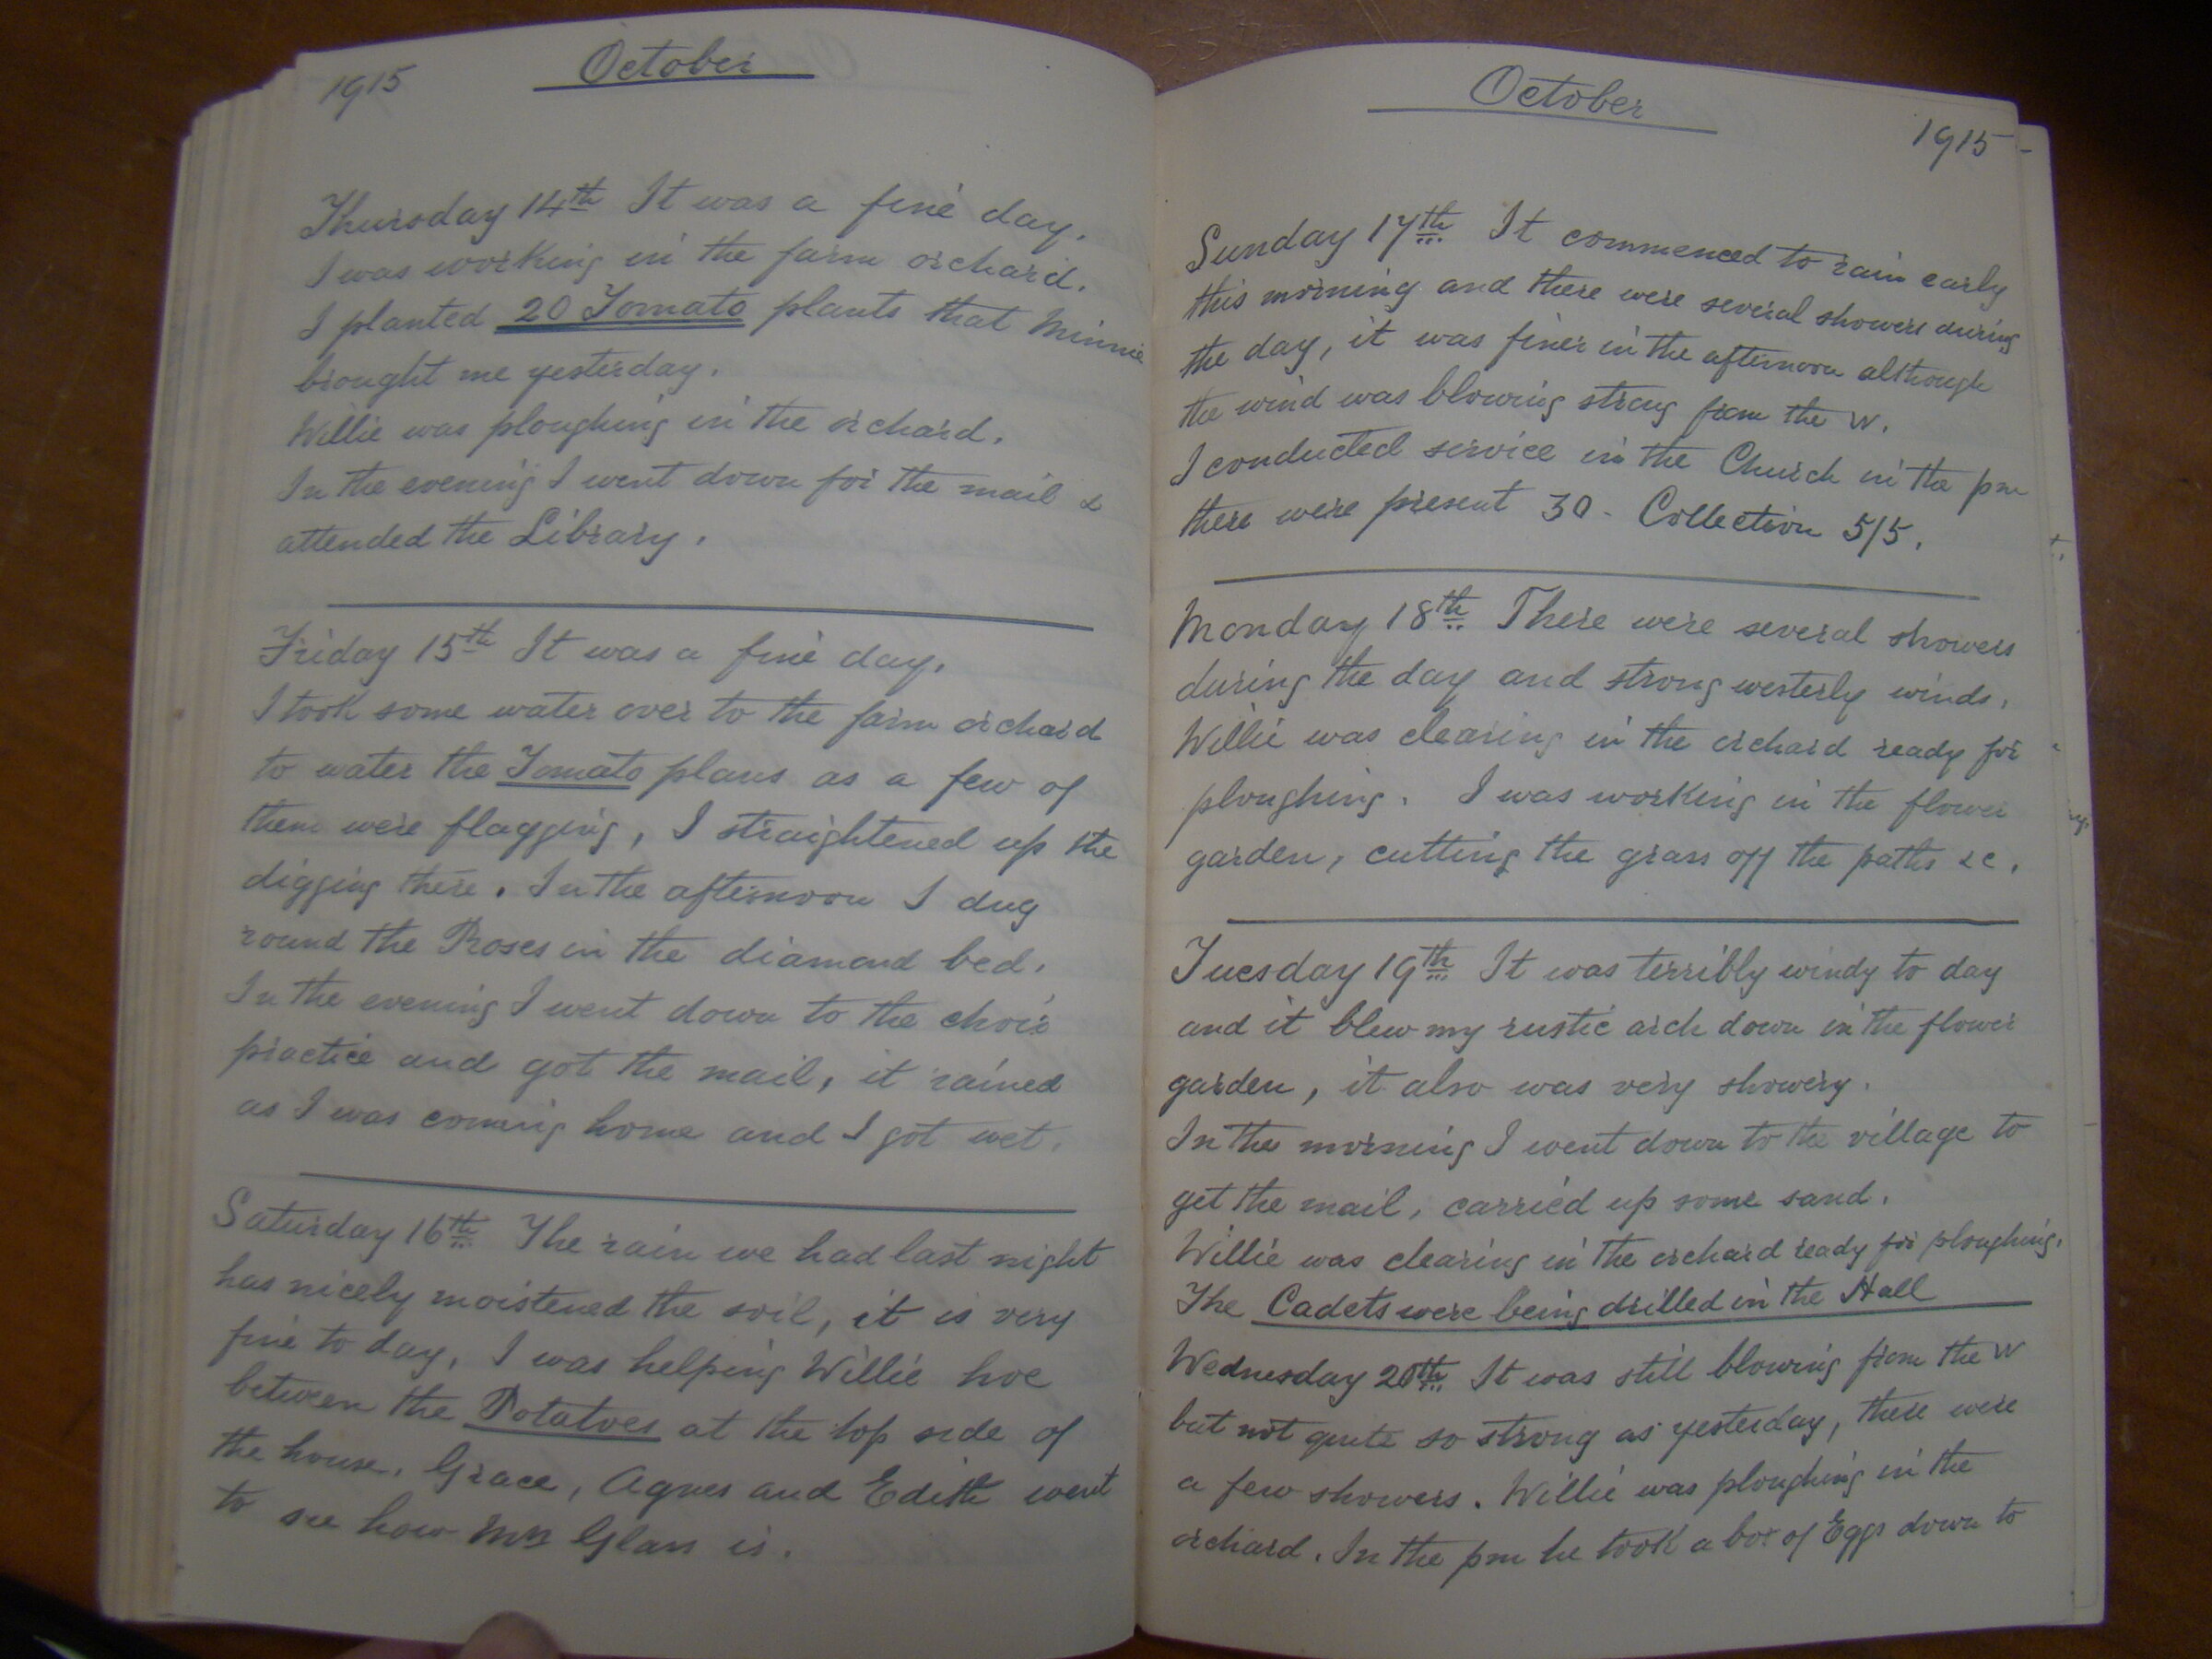 1915 October
Thursday 14th It was a fine day.
I was working in the farm orchard.
I planted 20 Tomato plants that Minnie
brought me yesterday.
Willie was ploughing in the orchard.
In the evening I went down for the mail &
attended the Library.
Friday 15th It was a fine day.
I took some water over to the farm orchard
to water the Tomato plans as a few of
them were flagging, I straightened up the
digging there. In the afternoon I dug
round the Roses in the diamond bed.
In the evening I went down to the choir
practice and got the mail, it rained
as I was coming home and I got wet.
Saturday 16th The rain we had last night
has nicely moistened the soil, it is very
fine to day, I was helping Willie hoe
between the Potatoes at the top side of
the house. Grace, Agnes and Edith went
to see how Mrs Glass is.
October
1915
Sunday 17th It commenced to rain early
this morning and there were several showers during
the day, it was finer in the afternoon although
the wind was blowing strong from the W.
I conducted service in the Church in the pm
there were present 30 - Collection 5/5.
Monday 18th There were several showers
during the day and strong westerly winds.
Willie was clearing in the orchard ready for
ploughing. I was working in the flower
garden, cutting the grass off the paths &c.
Tuesday 19th It was terribly windy to day
and it blew my rustic arch down in the flower
garden, it also was very showery.
In the morning I went down to the village to
get the mail, carried up some sand.
Willie was clearing in the orchard ready for ploughing.
The Cadets were being drilled in the Hall
Wednesday 20th It was still blowing from the W
but not quite so strong as yesterday, there were
a few showers. Willie was ploughing in the
orchard. In the pm he took a box of Eggs down to